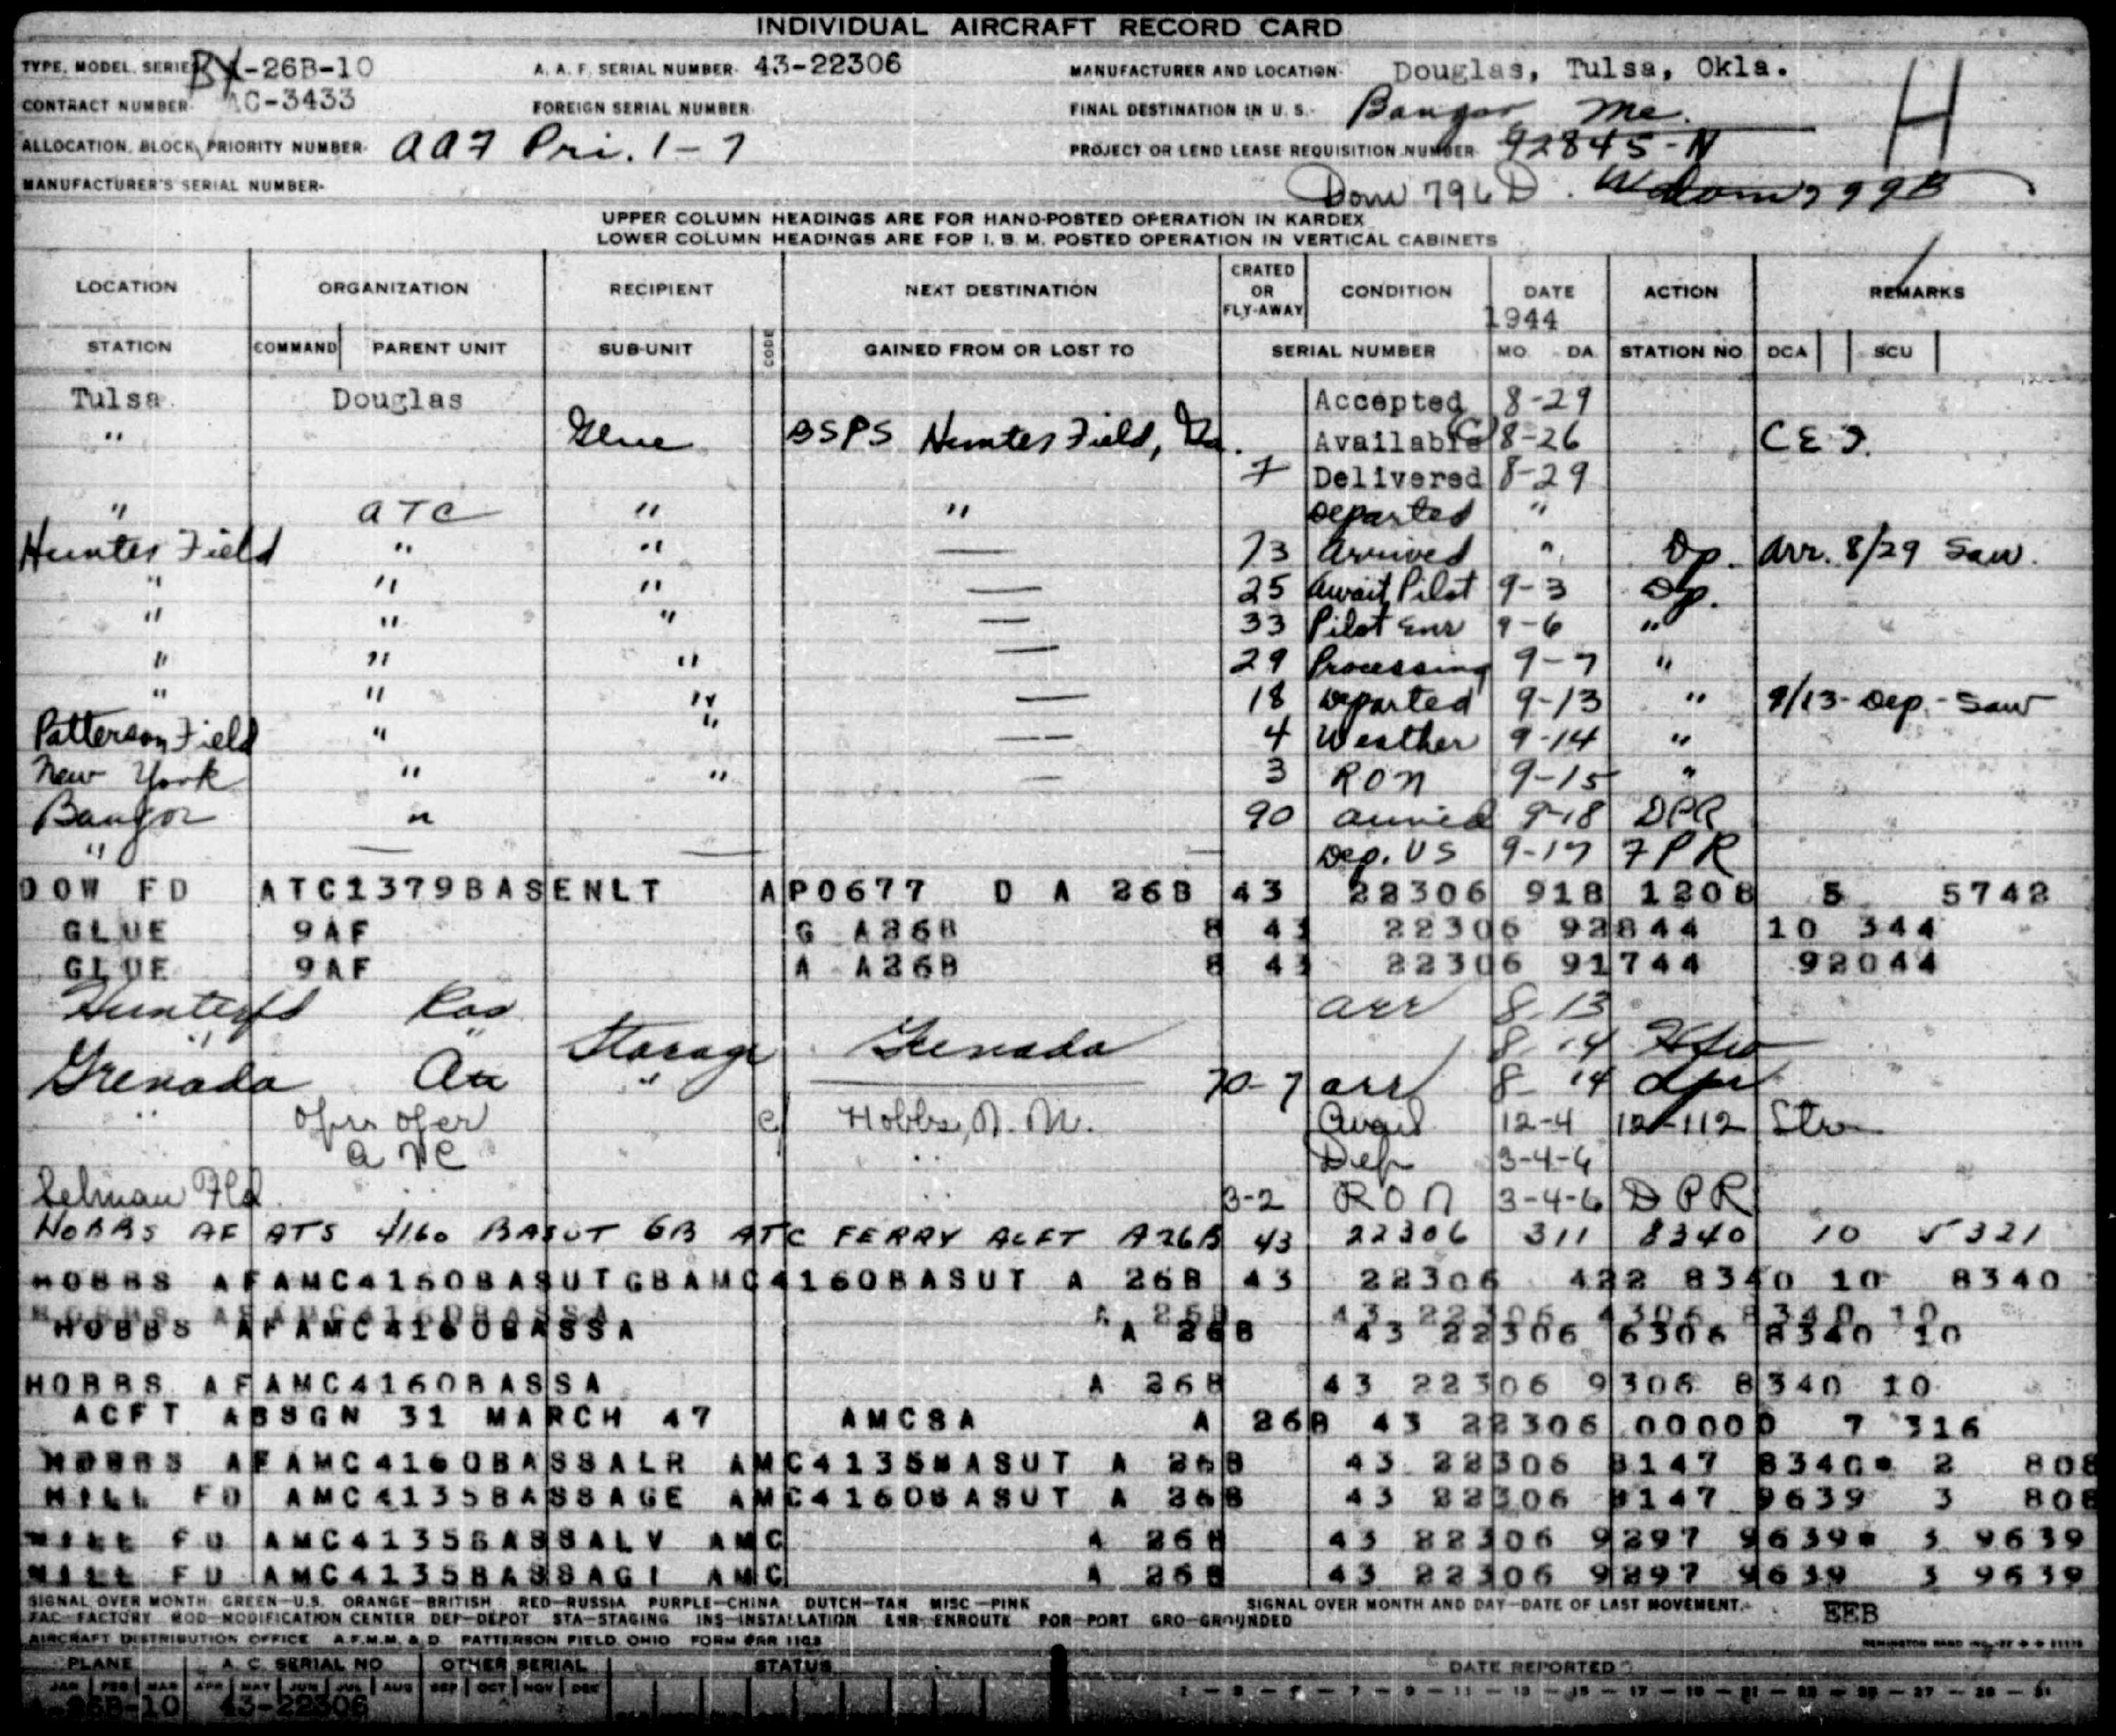 INDIVIDUAL AIRCRAFT RECORD CARD
TYPE, MODEL, SERIES -26B-10 A. A. F. SERIAL NUMBER- 43-22306 MANUFACTURER AND LOCATION- Douglas, Tulsa, Okla.
CONTRACT NUMBER- AC-3433 FOREIGN SERIAL NUMBER- FINAL DESTINATION IN U. S.- Bangor Me. H
ALLOCATION, BLOCK, PRIORITY NUMBER- AAF Pri. 1-7 PROJECT OR LEND LEASE REQUISITION NUMBER- 92845-N
MANUFACTURER'S SERIAL NUMBER- Dom 796D
UPPER COLUMN HEADINGS ARE FOR HAND-POSTED OPERATION IN KARDEX
LOWER COLUMN HEADINGS ARE FOR I. B. M. POSTED OPERATION IN VERTICAL CABINETS
LOCATION ORGANIZATION RECIPIENT NEXT DESTINATION CRATED OR FLY-AWAY CONDITION DATE ACTION REMARKS
1944
STATION COMMAND PARENT UNIT SUB-UNIT CODE GAINED FROM OR LOST TO SERIAL NUMBER MO. DA. STATION NO. DCA SCU
Tulsa Douglas Accepted 8-29
" Glue BSPS Hunter Field, Ga. Available (C) 8-26 CEF
7 Delivered 8-29
" ATC " " Departed "
Hunter Field " " — 73 Arrived " Dp. Arr. 8/29 Sav.
" " " — 25 Await Pilot 9-3 Dp.
" " " — 33 Pilot Enr 9-6 "
" " " — 29 Processing 9-7 "
" " " — 18 Departed 9-13 " 9/13-Dep.-Sav
Patterson Field " " — 4 Weather 9-14 "
New York " " — 3 RON 9-15 "
Bangor " 90 Arrived 9-18 DPR
" — — — Dep. US 9-17 FPR
DOW FD ATC1379BASENLT APO677 D A 26B 43 22306 918 1208 5 5742
GLUE 9AF G A26B 8 43 22306 92844 10 344
GLUE 9AF A A26B 8 43 22306 91744 92044
Hunter fd Ras arr 8-13
" " Storage Grenada 8-14
Grenada " 70-7 arr 8-14 dpr
" oprs oper C Hobbs, N. M. Avail 12-4 12-112 Str
ATC " Dep 3-4-6
Selman Fld " " 3-2 RON 3-4-6 DPR
HOBBS AF ATS 4160 BASUT GB ATC FERRY ACFT A26B 43 22306 311 8340 10 5321
HOBBS AFAMC4160BASUTGBAMC4160BASUT A 26B 43 22306 422 8340 10 8340
HOBBS AFAMC4160BASSA A 26B 43 22306 4306 8340 10
HOBBS AFAMC4160BASSA A 26B 43 22306 6306 8340 10
HOBBS AFAMC4160BASSA A 26B 43 22306 9306 8340 10
ACFT ABSGN 31 MARCH 47 AMCSA A 26B 43 22306 00000 7 316
HOBBS AFAMC4160BASSALR AMC4135BASUT A 26B 43 22306 8147 8340 2 808
HILL FD AMC4135BASSAGE AMC4160BASUT A 26B 43 22306 8147 9639 3 808
HILL FD AMC4135BASSALV AMC A 26B 43 22306 9297 9639 3 9639
HILL FD AMC4135BASSAGI AMC A 26B 43 22306 9297 9639 3 9639
SIGNAL OVER MONTH: GREEN—U.S. ORANGE—BRITISH RED—RUSSIA PURPLE—CHINA DUTCH—TAN MISC—PINK SIGNAL OVER MONTH AND DAY—DATE OF LAST MOVEMENT. EEB
FAC—FACTORY MOD—MODIFICATION CENTER DEP—DEPOT STA—STAGING INS—INSTALLATION ENR—ENROUTE POR—PORT GRO—GROUNDED
AIRCRAFT DISTRIBUTION OFFICE A.F.M.M. & D. PATTERSON FIELD, OHIO FORM
PLANE A. C. SERIAL NO OTHER SERIAL STATUS DATE REPORTED
JAN FEB MAR APR MAY JUN JUL AUG SEP OCT NOV DEC
26B-10 43-22306